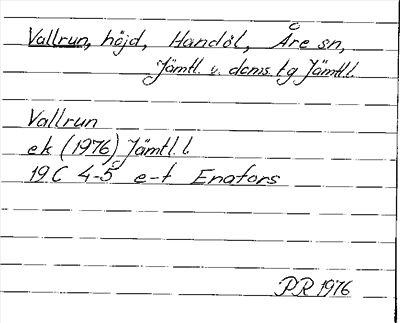 Vallrun, höjd, Handöl, Åre sn,
Jämtl. v. doms. tg Jämtl.l.
Vallrun
ek (1976) Jämtl. l
19 C 4-5 e-f Enafors
PR 1976